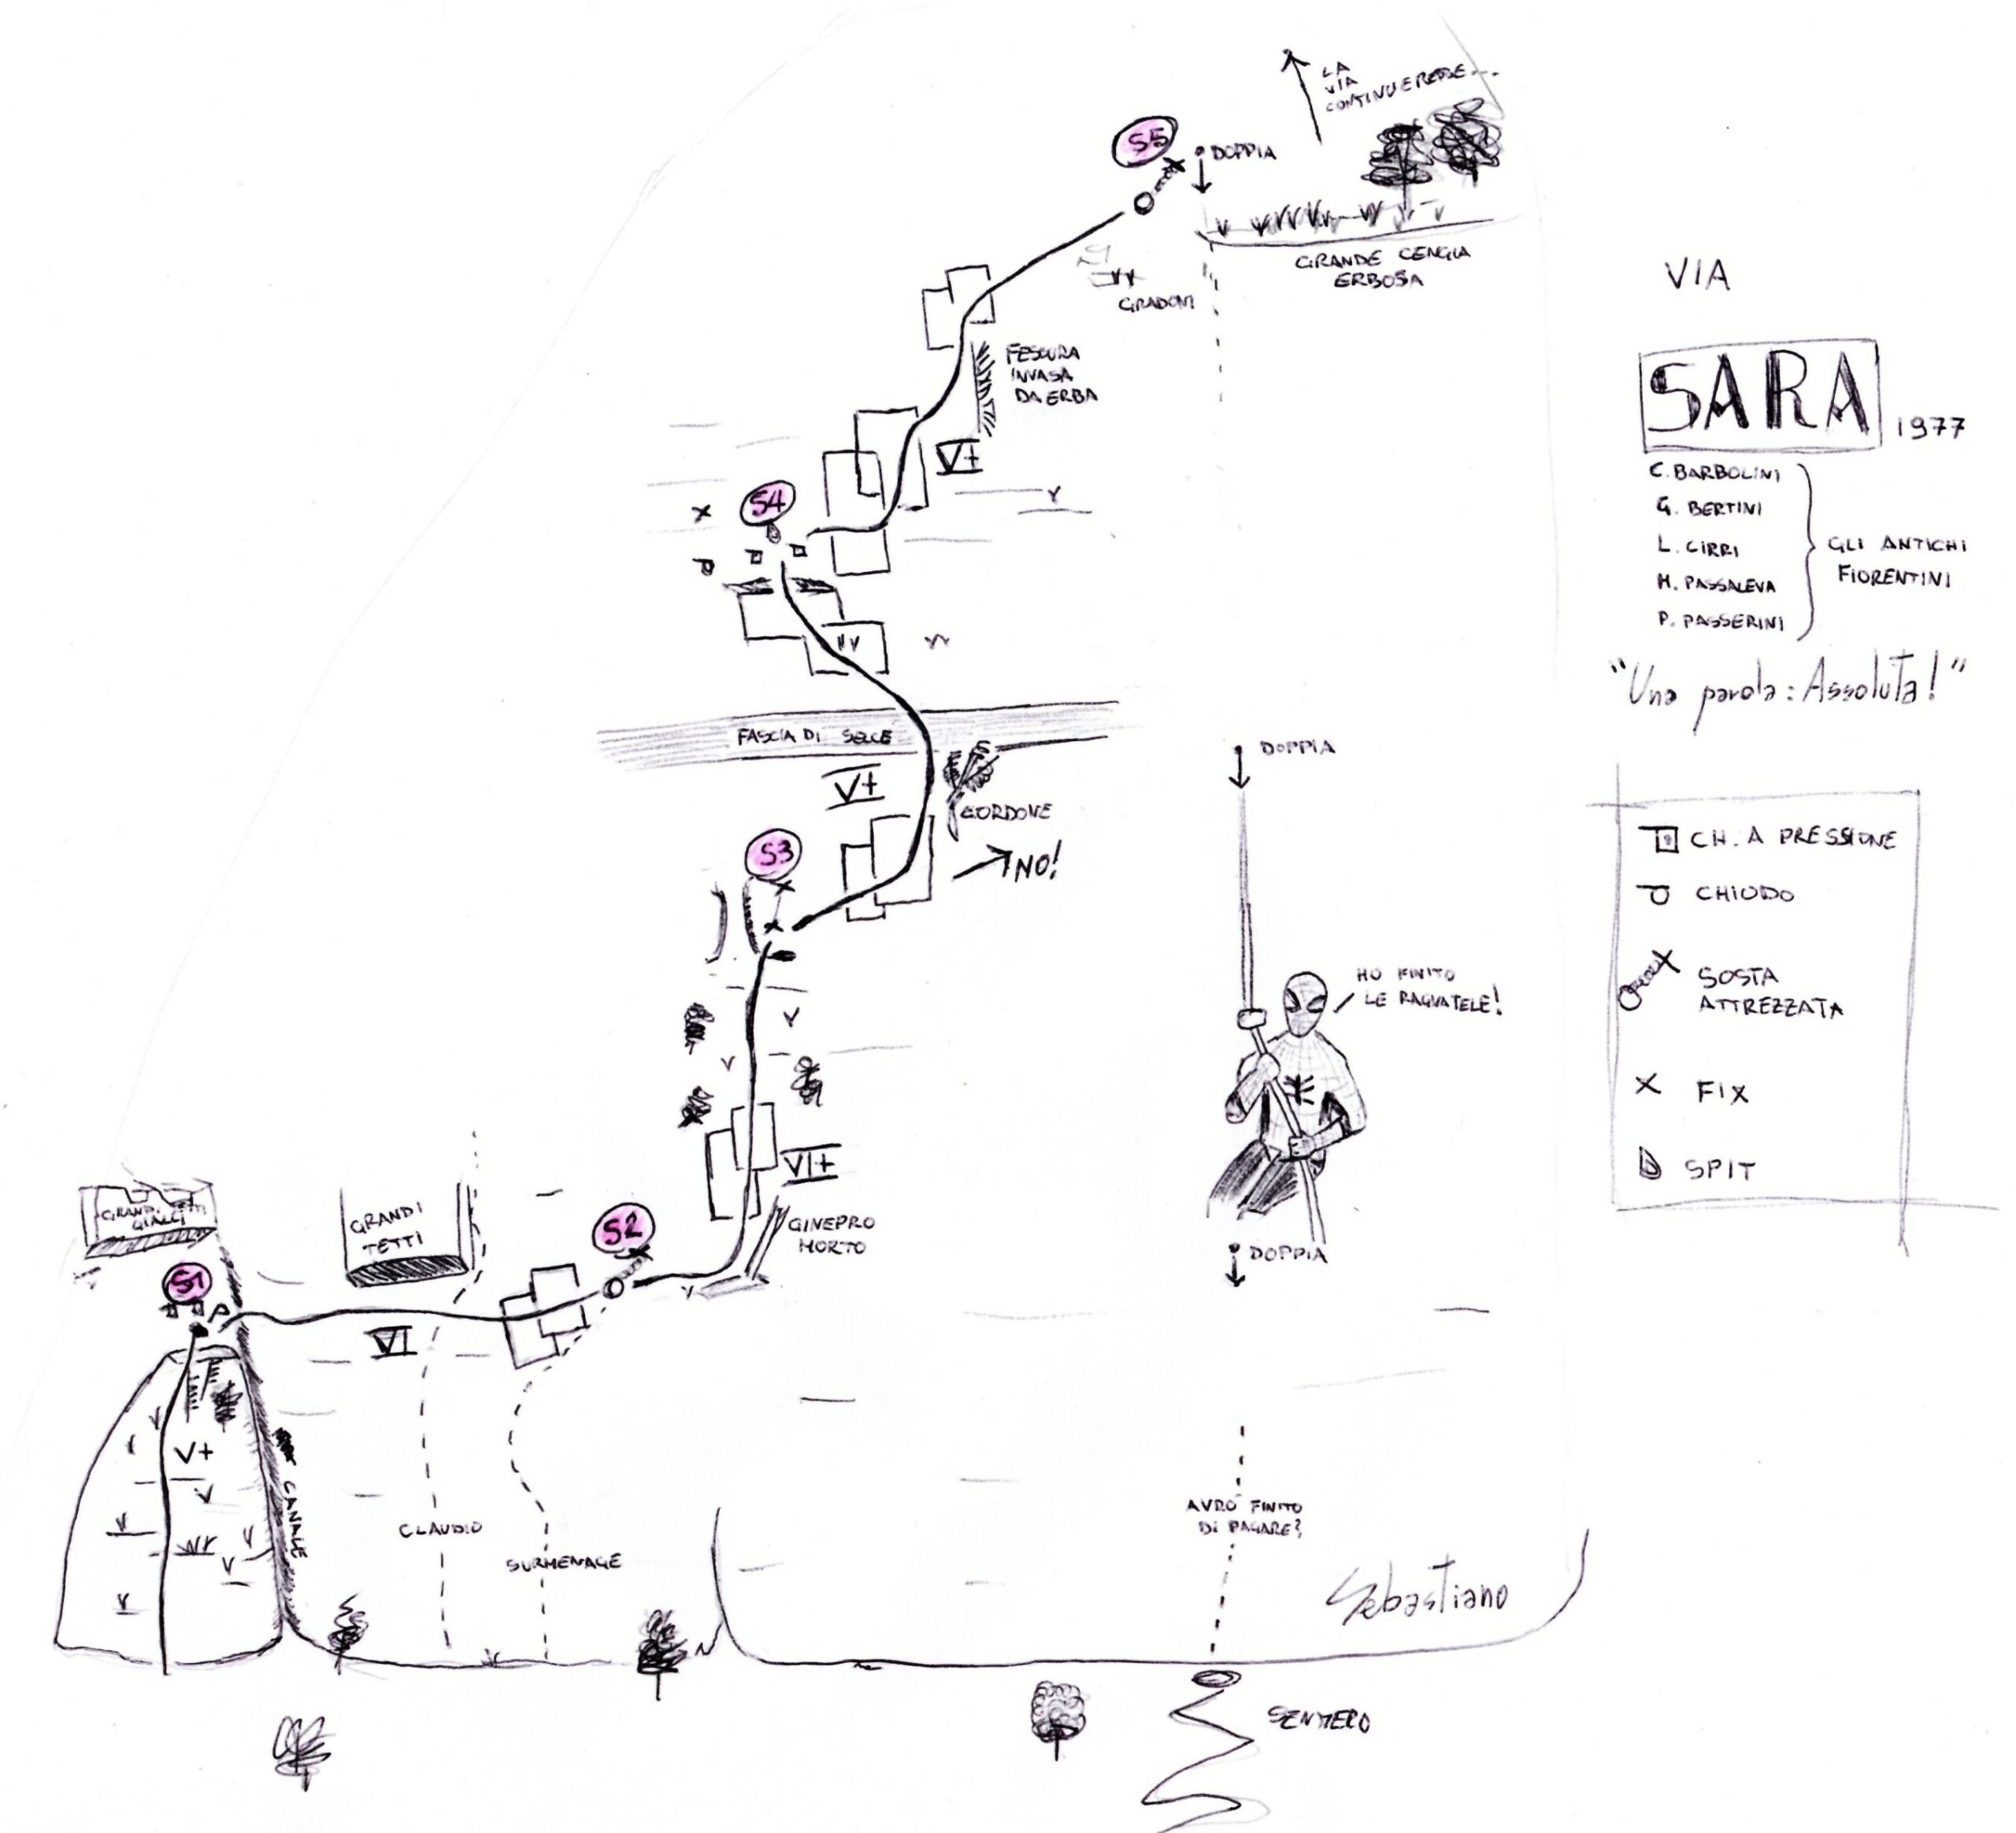 LA
VIA
CONTINUEREBBE...
S5
DOPPIA
GRANDE CENGIA
ERBOSA
GRADONI
FESSURA
INVASA
DA ERBA
V+
S4
FASCIA DI SELCE
V+
CORDONE
NO!
S3
VI+
GINEPRO
MORTO
S2
GRANDI
TETTI
GRANDI TETTI
GIALLI
S1
VI
V+
CANALE
CLAUDIO
SURMENAGE
DOPPIA
HO FINITO
LE RAGNATELE!
DOPPIA
AVRÒ FINITO
DI PAGARE?
Sebastiano
SENTIERO
VIA
SARA 1977
C. BARBOLINI
G. BERTINI
L. CIRRI
M. PASSALEVA
P. PASSERINI
GLI ANTICHI
FIORENTINI
"Una parola: Assoluta!"
CH. A PRESSIONE
CHIODO
SOSTA
ATTREZZATA
FIX
SPIT